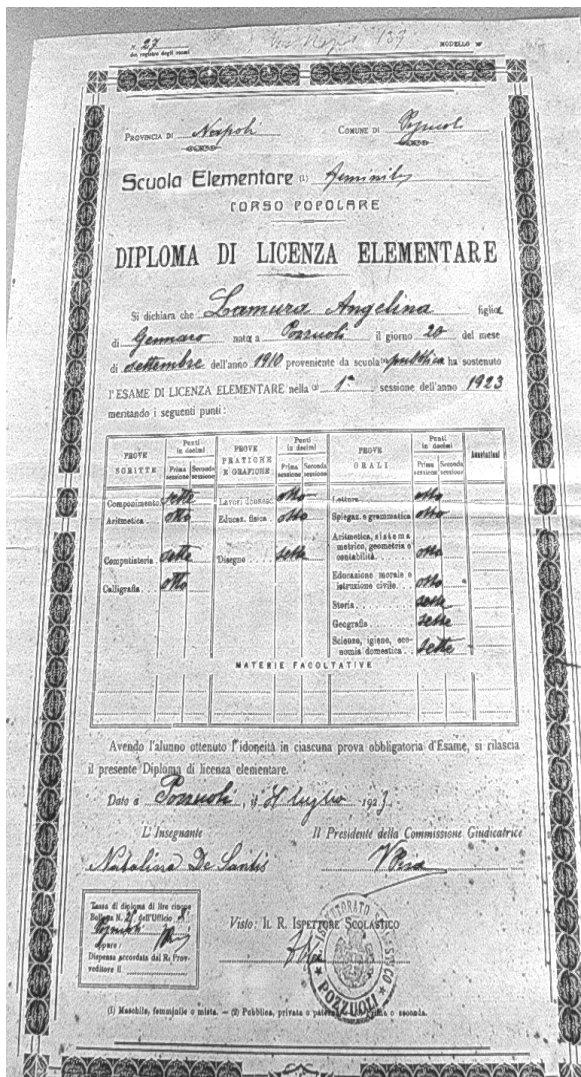 N. 27
del registro degli esami
MODELLO
PROVINCIA DI Napoli COMUNE DI Pozzuoli
Scuola Elementare (1) femminile
CORSO POPOLARE
DIPLOMA DI LICENZA ELEMENTARE
Si dichiara che Lamura Angelina figlia
di Gennaro nata a Pozzuoli il giorno 20 del mese
di settembre dell'anno 1910 proveniente da scuola (2) pubblica ha sostenuto
l'ESAME DI LICENZA ELEMENTARE nella (3) 1ª sessione dell'anno 1923
meritando i seguenti punti:
PROVE SCRITTE Punti in decimi Prima sessione Seconda sessione
PROVE PRATICHE E GRAFICHE Punti in decimi Prima sessione Seconda sessione
PROVE ORALI Punti in decimi Prima sessione Seconda sessione Annotazioni
Componimento sette Lavori donneschi otto Lettura otto
Aritmetica otto Educaz. fisica otto Spiegaz. e grammatica otto
Aritmetica, sistema
metrico, geometria e
contabilità. otto
Computisteria sette Disegno sette
Calligrafia otto Educazione morale e
istruzione civile. otto
Storia sette
Geografia sette
Scienze, igiene, eco-
nomia domestica. sette
MATERIE FACOLTATIVE
Avendo l'alunno ottenuto l'idoneità in ciascuna prova obbligatoria d'Esame, si rilascia
il presente Diploma di licenza elementare.
Dato a Pozzuoli, il luglio 1923
L'Insegnante Il Presidente della Commissione Giudicatrice
Natalina De Santis
Tassa di diploma di lire cinque
Bolletta N. dell'Ufficio
Pozzuoli
oppure:
Dispensa accordata dal R. Prov-
veditore il
Visto: IL R. ISPETTORE SCOLASTICO
ISPETTORATO SCOLASTICO
POZZUOLI
(1) Maschile, femminile o mista. — (2) Pubblica, privata o paterna. prima o seconda.